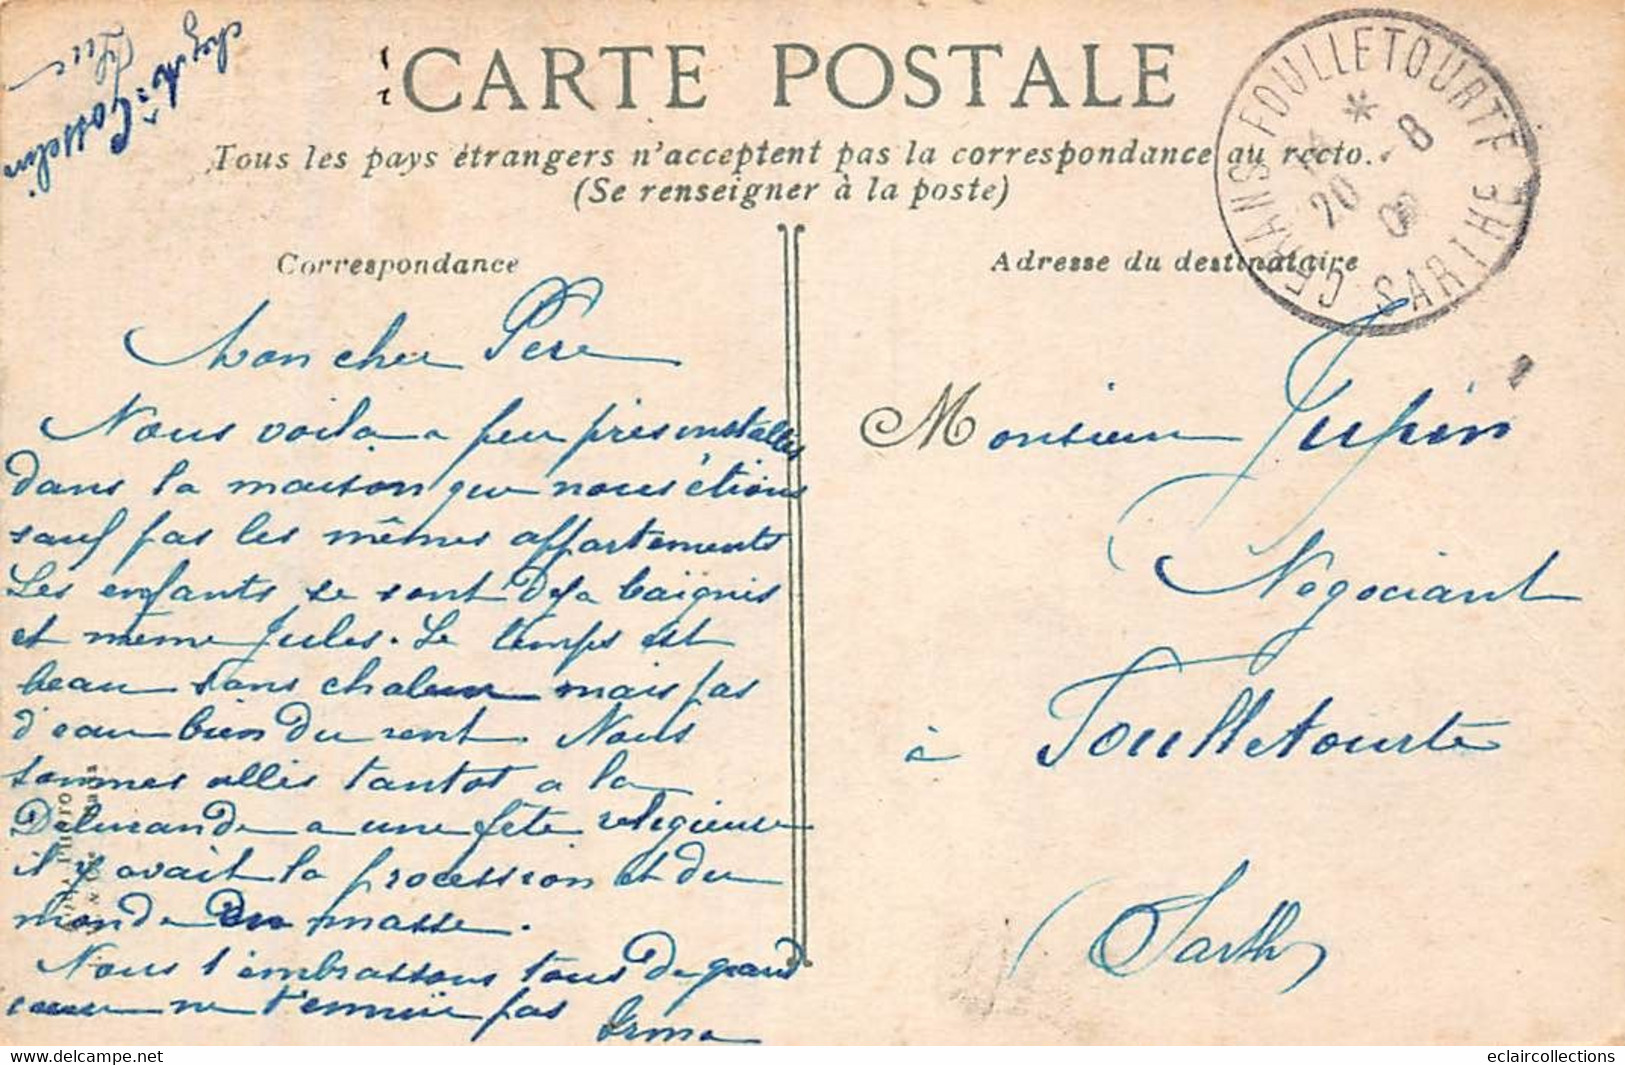 chez Mr Cosselin
Luc
CARTE POSTALE
Tous les pays étrangers n'acceptent pas la correspondance au recto.
(Se renseigner à la poste)
CERANS FOULLETOURTE
20 - 8
SARTHE
Correspondance
Adresse du destinataire
Mon cher Père
Nous voila a peu près installés
dans la maison que nous étions
sauf pas les mêmes appartements
Les enfants se sont deja baignés
et même Jules. Le temps est
beau sans chaleur mais pas
d'eau bien du vent. Nous
sommes allés tantot a la
Delivrande a une fête religieuse
il y avait la procession et du
monde en masse.
Nous t'embrassons tous de grand
coeur ne t'ennuie pas
Irma
Monsieur Jupin
Négociant
à Foulletourte
(Sarthe)
eclaircollections
https://www.delcampe.net